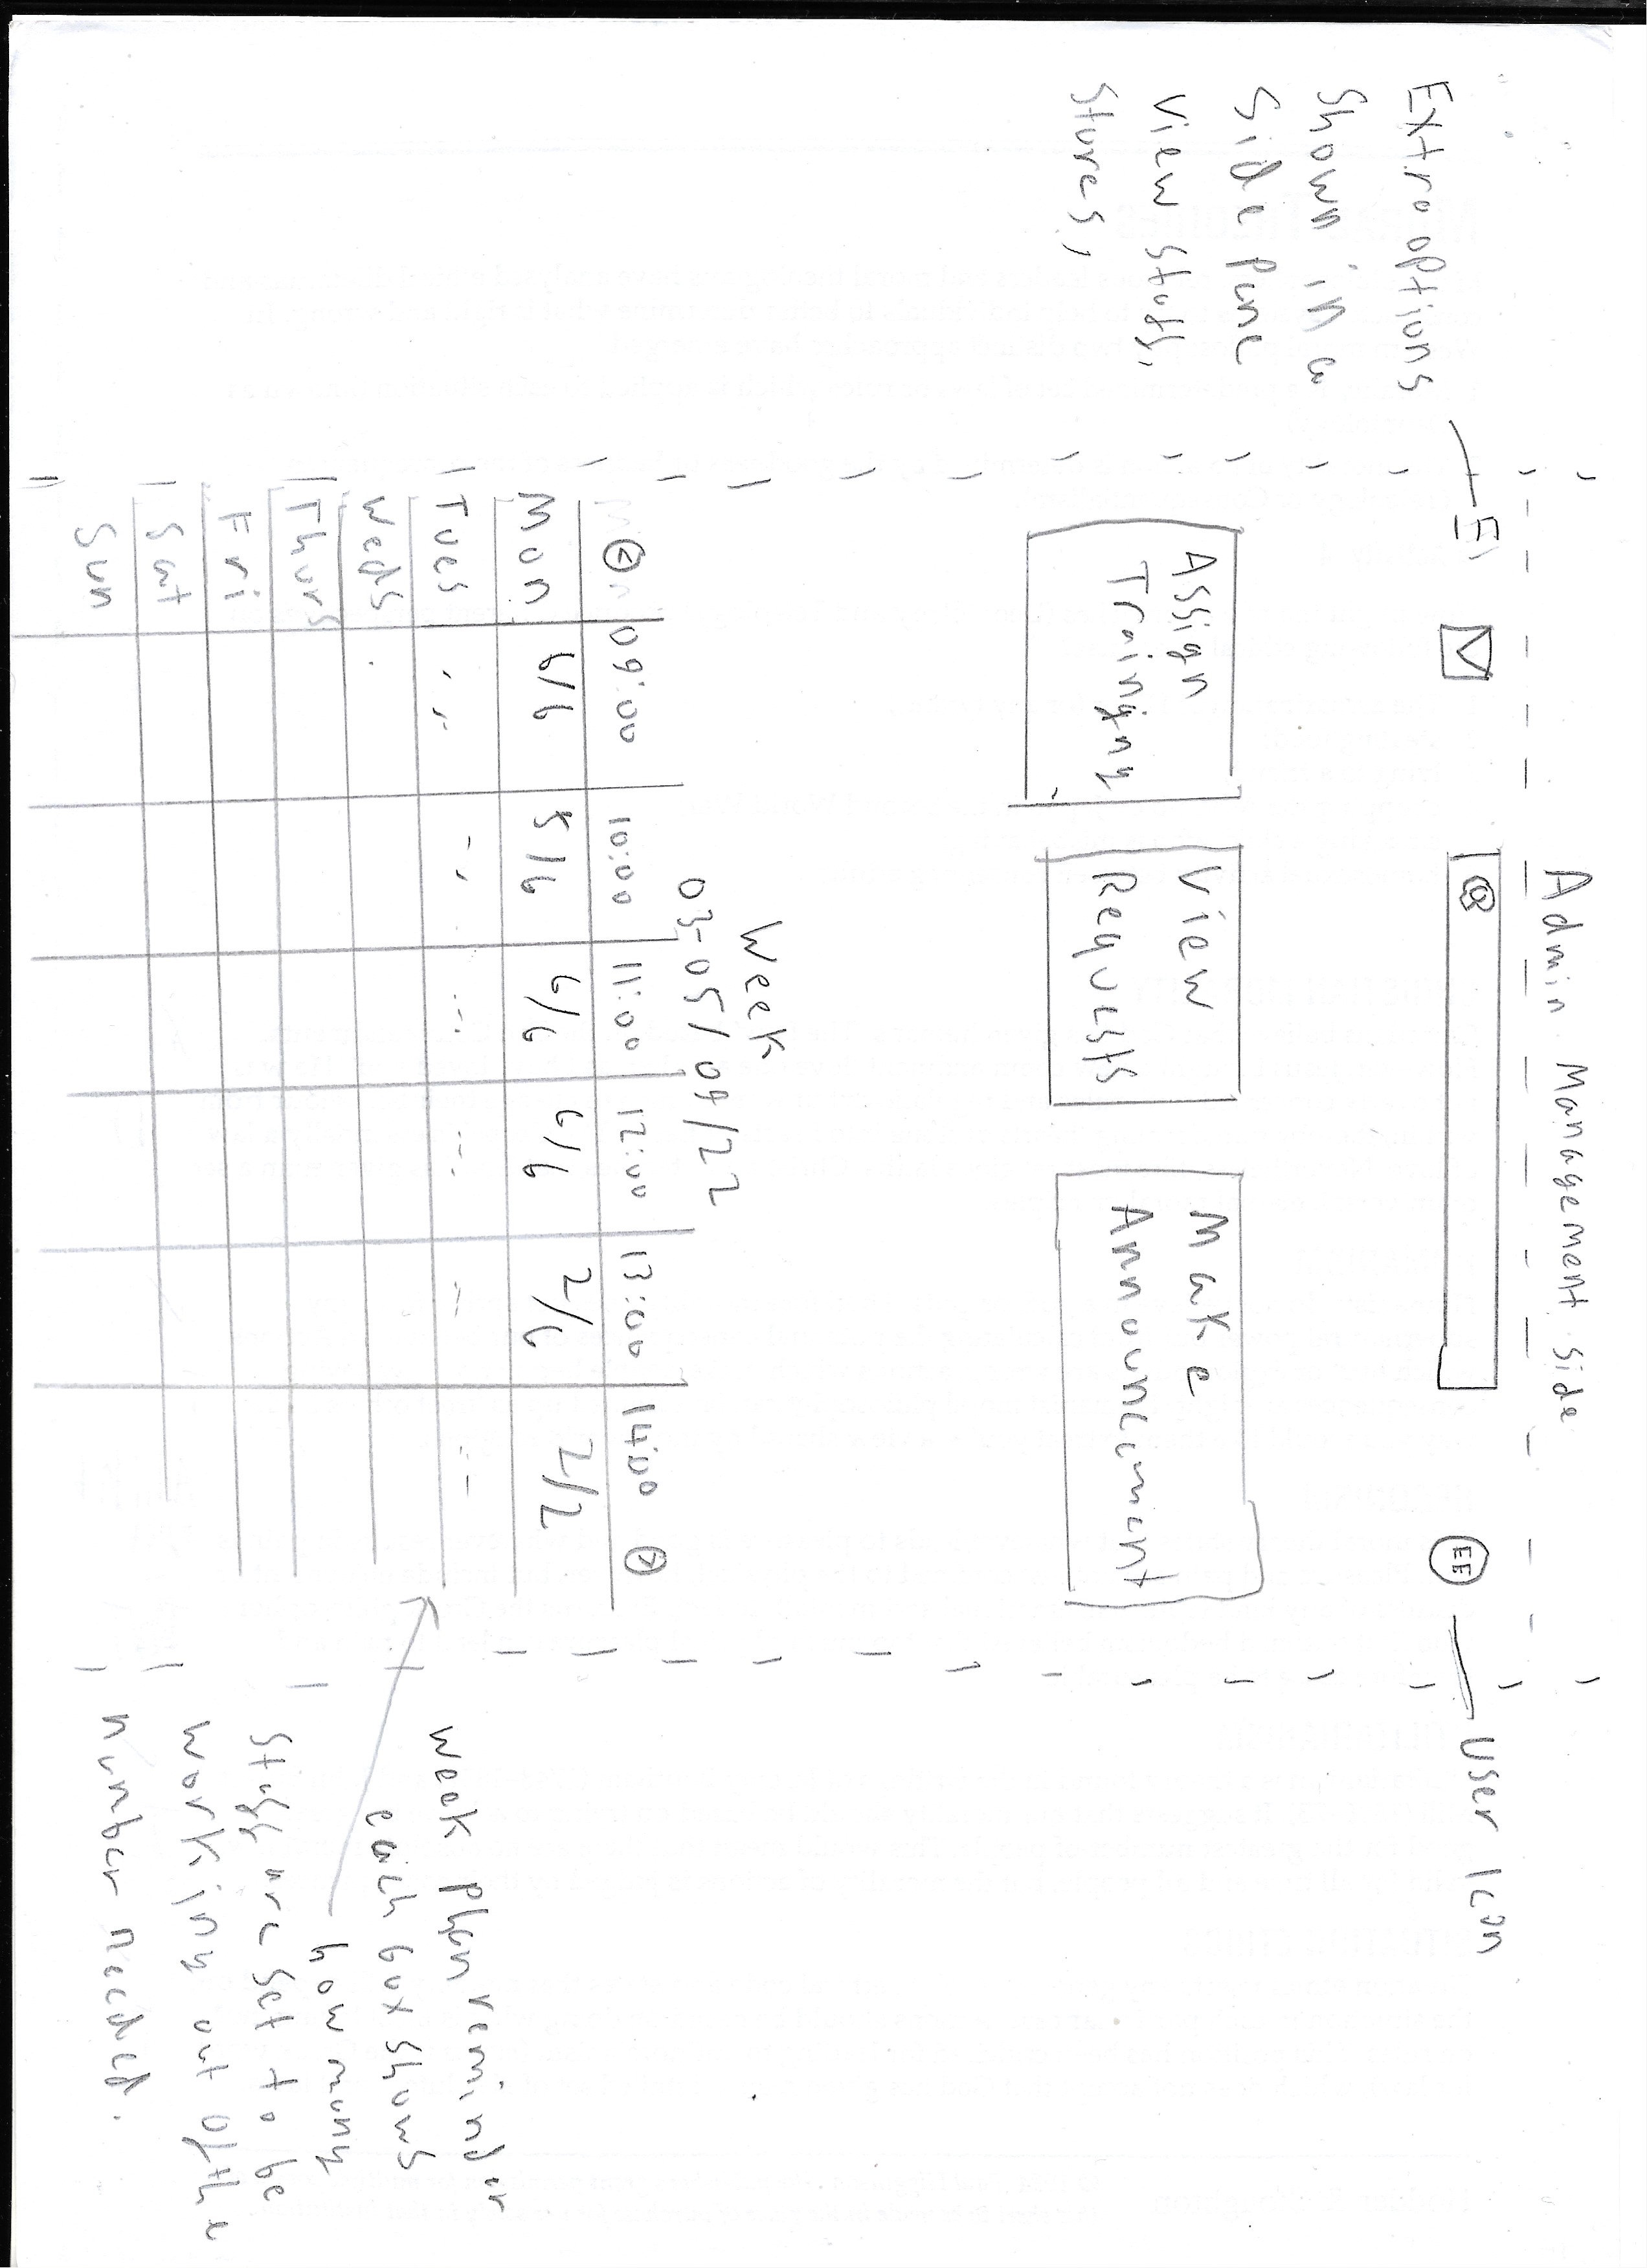 Admin Management side
EE
User Icon
Extra options
Shown in a
Side Pane
View Staff,
Stores,
Assign
Trainging
View
Requests
Make
Announcement
Week
03-05/04/22
< 09:00 10:00 11:00 12:00 13:00 14:00 >
Mon 6/6 5/6 6/6 6/6 2/6 2/2
Tues
Weds
Thurs
Fri
Sat
Sun
Week Plan reminder
each box shows
how many
Staff are set to be
working out of the
number needed.